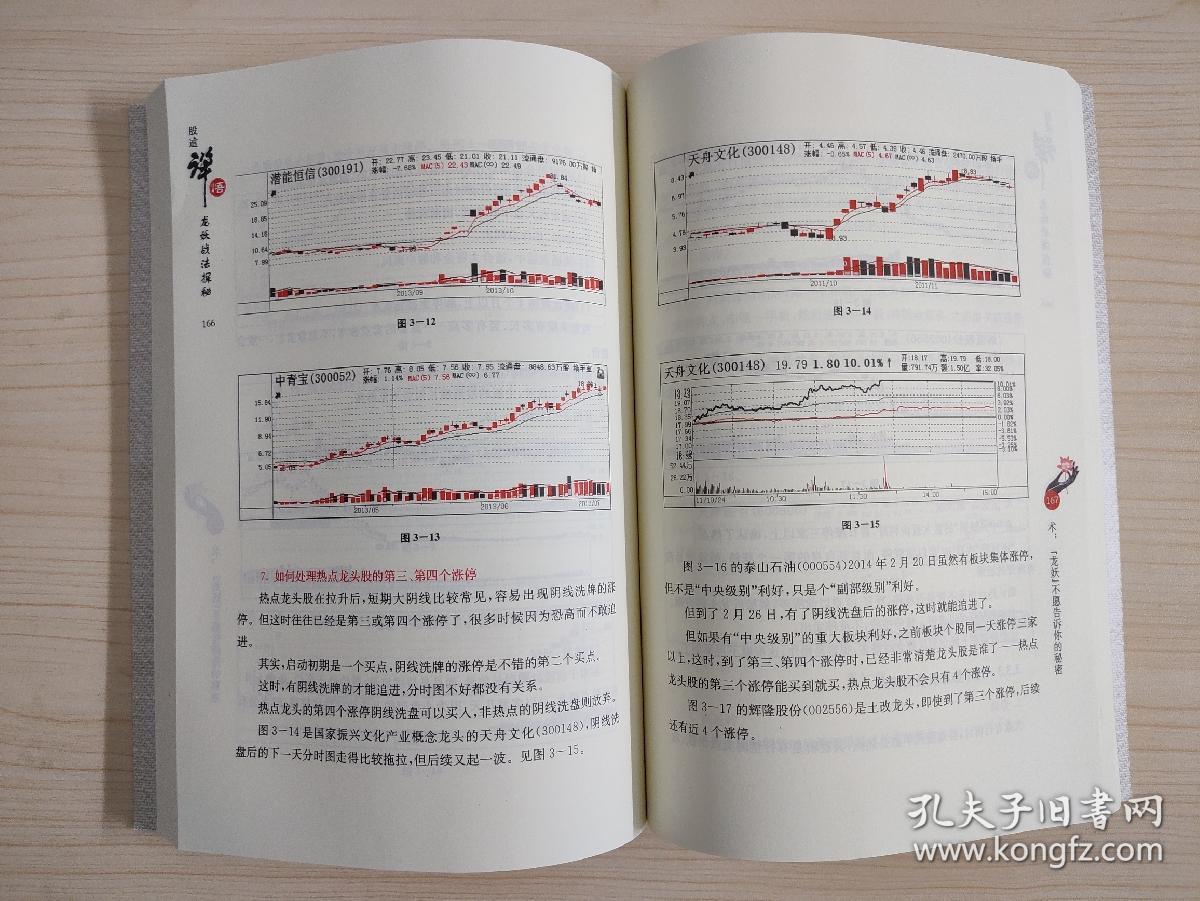 股道
禅
悟
龙妖战法探秘
166
潜能恒信(300191)
开: 22.77 高: 23.45 低: 21.01 收: 21.11 流通盘: 9176.00万股 换
涨幅: -7.62% MAC(5) 22.43 MAC(∞) 22.49
25.09
18.85
14.16
10.64
7.99
2013/09
2013/10
图 3—12
中青宝(300052)
开: 7.76 高: 8.05 低: 7.56 收: 7.95 流通盘: 8848.63万股 换手率
涨幅: 1.14% MAC(5) 7.56 MAC(∞) 6.77
15.84
11.90
8.94
6.72
5.05
2013/05
2013/06
2013/07
图 3—13
7. 如何处理热点龙头股的第三、第四个涨停
热点龙头股在拉升后,短期大阴线比较常见,容易出现阴线洗牌的涨
停。但这时往往已经是第三或第四个涨停了,很多时候因为恐高而不敢追
进。
其实,启动初期是一个买点,阴线洗牌的涨停是不错的第二个买点。
这时,有阴线洗牌的才能追进,分时图不好都没有关系。
热点龙头的第四个涨停阴线洗盘可以买入,非热点的阴线洗盘则放弃。
图 3—14是国家振兴文化产业概念龙头的天舟文化(300148),阴线洗
盘后的下一天分时图走得比较拖拉,但后续又起一波。见图 3—15。
天舟文化(300148)
开: 4.46 高: 4.57 低: 4.39 收: 4.46 流通盘: 2470.00万股 换手
涨幅: -0.65% MAC(5) 4.67 MAC(∞) 4.63
8.43
6.97
5.76
4.76
3.93
9.83
3.93
2011/10
2011/11
图 3—14
天舟文化(300148) 19.79 1.80 10.01%↑
开:18.17 高:19.79 低:18.00
量:791.74万 额:1.50亿 换:32.05%
10.01%
8.03%
3.92%
2.03%
0.00%
11/10/24
10:30
14:00
15:00
图 3—15
图 3—16 的泰山石油(000554)2014 年 2 月 20 日虽然有板块集体涨停,
但不是“中央级别”利好,只是个“副部级别”利好。
但到了 2 月 26 日,有了阴线洗盘后的涨停,这时就能追进了。
但如果有“中央级别”的重大板块利好,之前板块个股同一天涨停三家
以上,这时,到了第三、第四个涨停时,已经非常清楚龙头股是谁了——热点
龙头股的第三个涨停能买到就买,热点龙头股不会只有 4 个涨停。
图 3—17 的辉隆股份(002556)是土改龙头,即使到了第三个涨停,后续
还有近 4 个涨停。
167
术:“龙妖”不愿告诉你的秘密
孔夫子旧书网
www.kongfz.com